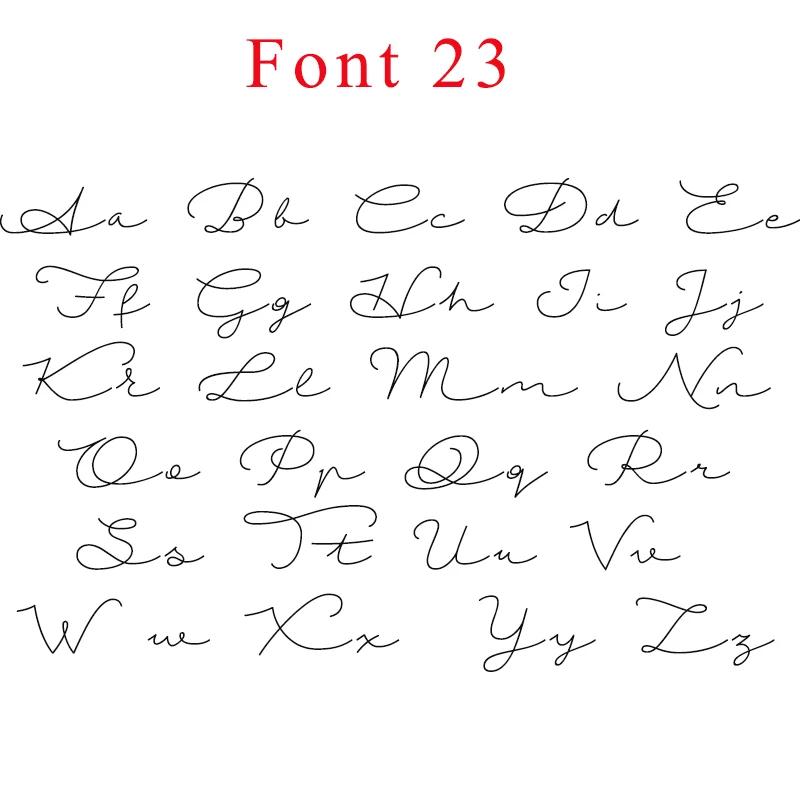 Font 23
Aa Bb Cc Dd Ee
Ff Gg Hh Ii Jj
Kk Ll Mm Nn
Oo Pp Qq Rr
Ss Tt Uu Vv
W w Xx Yy Zz